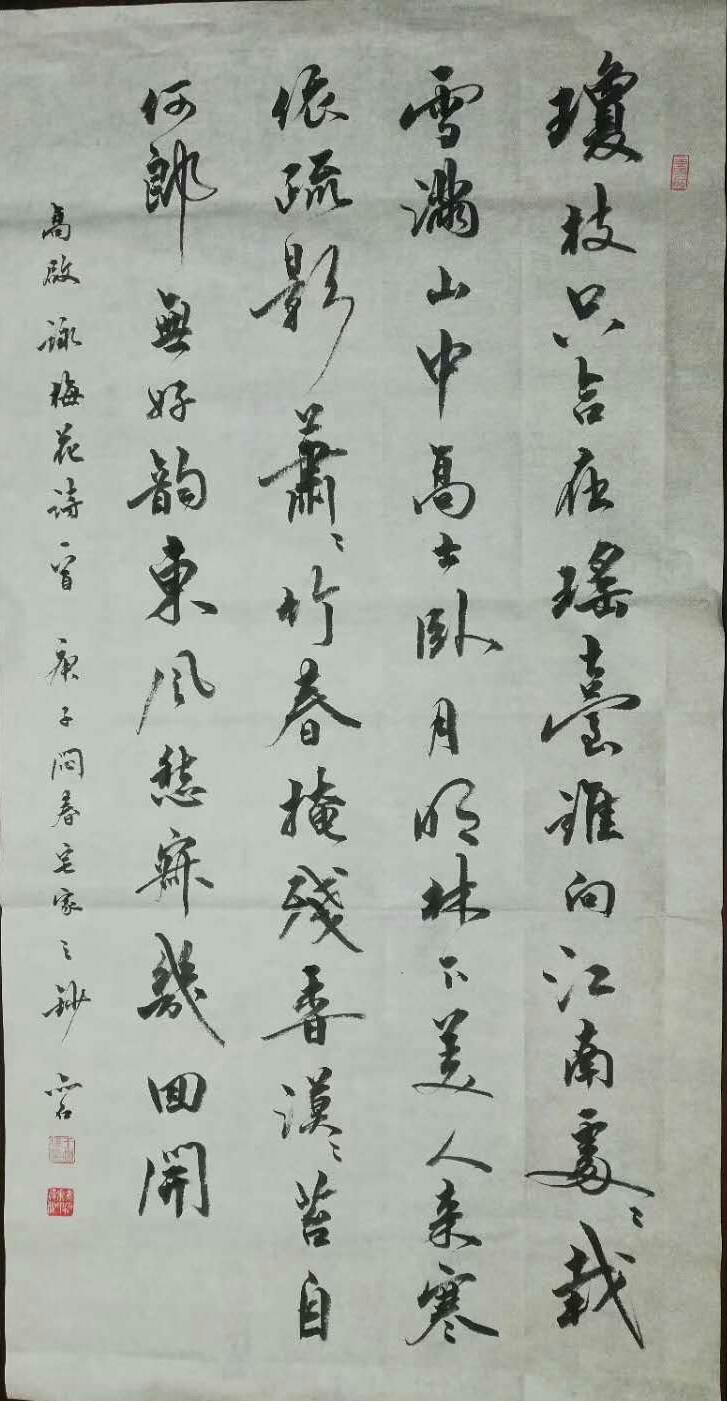 瓊枝只合在瑤臺誰向江南處〻栽
雪滿山中高士臥月明林下美人来寒
依疏影蕭〻竹春掩殘香漠〻苔自
何郎無好韻東風愁寂幾回開
高啟詠梅花詩一首 庚子悶春宅家之鈔